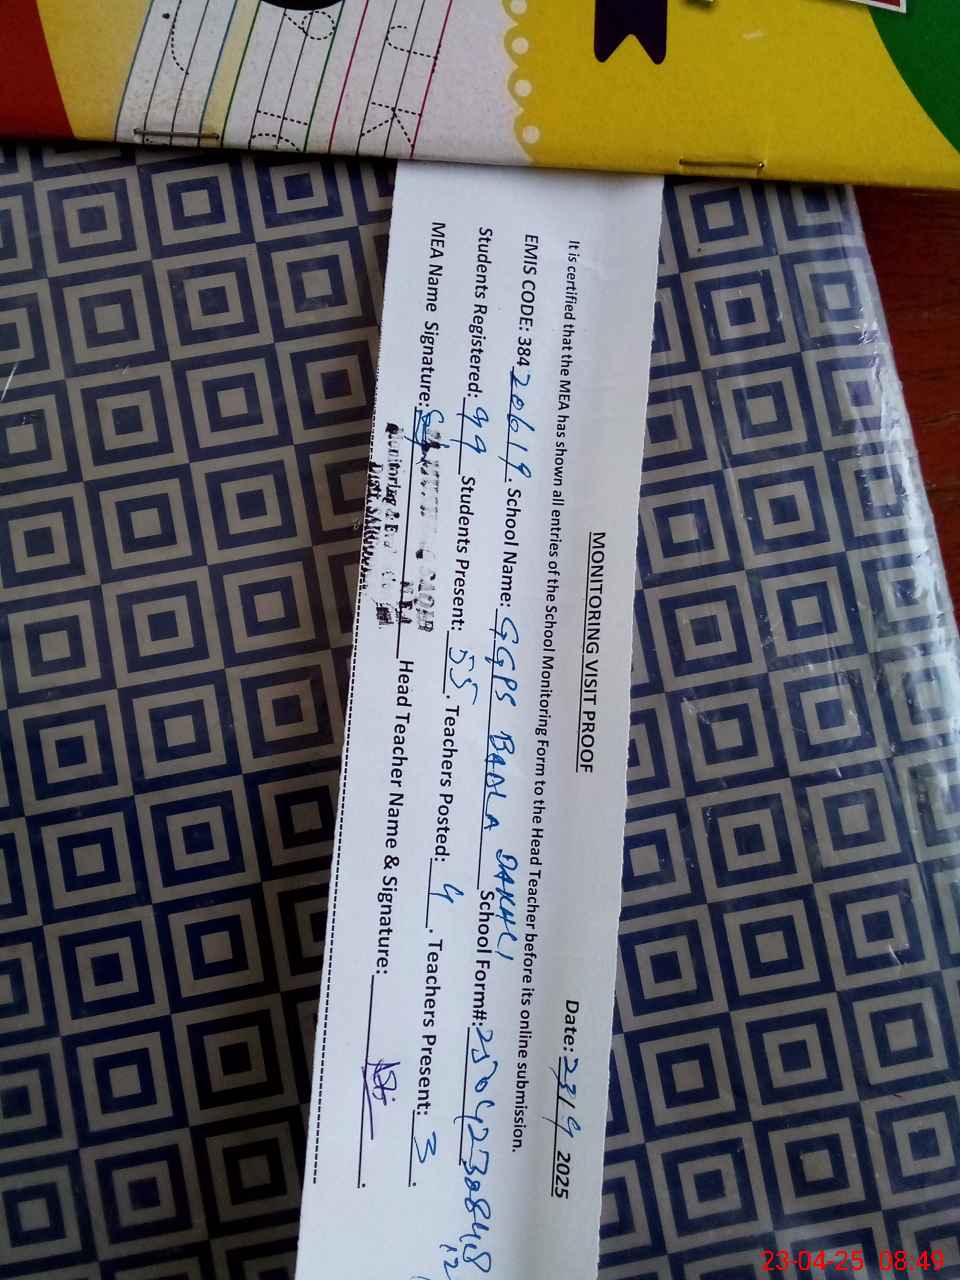 MONITORING VISIT PROOF
Date: 23/4 2025
It is certified that the MEA has shown all entries of the School Monitoring Form to the Head Teacher before its online submission.
EMIS CODE: 38420619. School Name: GGPS BADLA DAKHLI School Form#: 2504230848
Students Registered: 99 Students Present: 55. Teachers Posted: 4. Teachers Present: 3.
MEA Name Signature: Head Teacher Name & Signature:
M.E.A
Monitoring & Ev
Distt. SARGODHA
J K
23-04-25 08:49